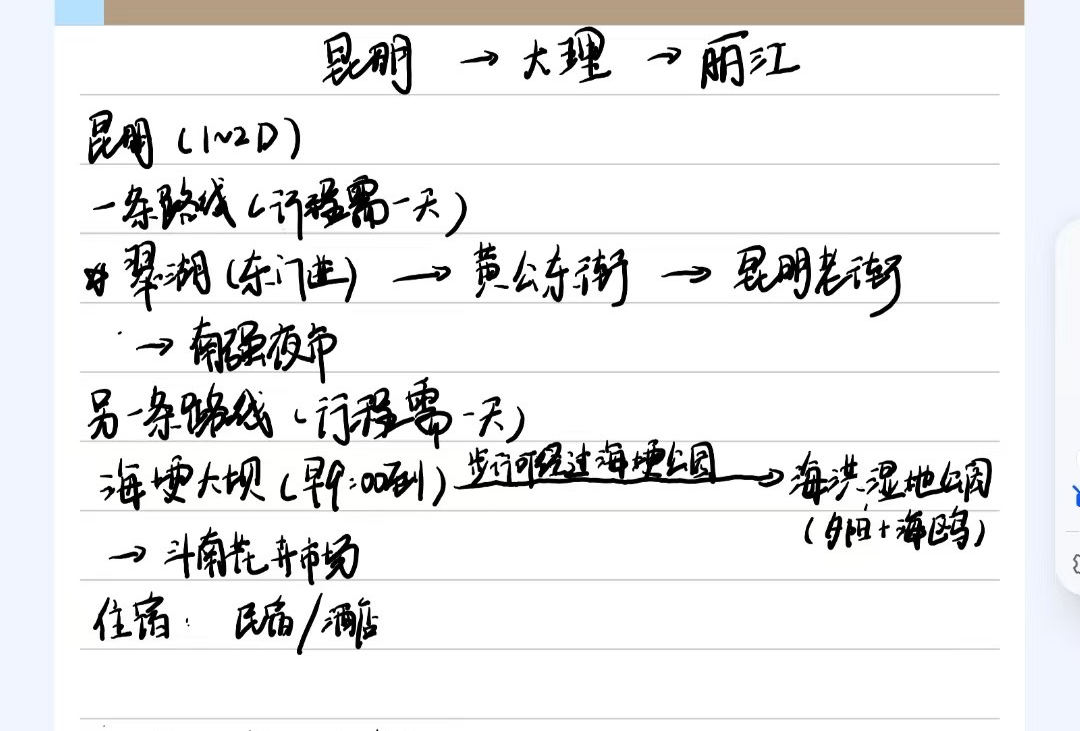 昆明 → 大理 → 丽江
昆明 (1~2D)
一条路线 (行程需一天)
翠湖 (东门进) → 黄公东街 → 昆明老街
→ 南强夜市
另一条路线 (行程需一天)
海埂大坝 (早9:00到) 步行可经过海埂公园 → 海洪湿地公园
(夕阳+海鸥)
→ 斗南花卉市场
住宿: 民宿/酒店